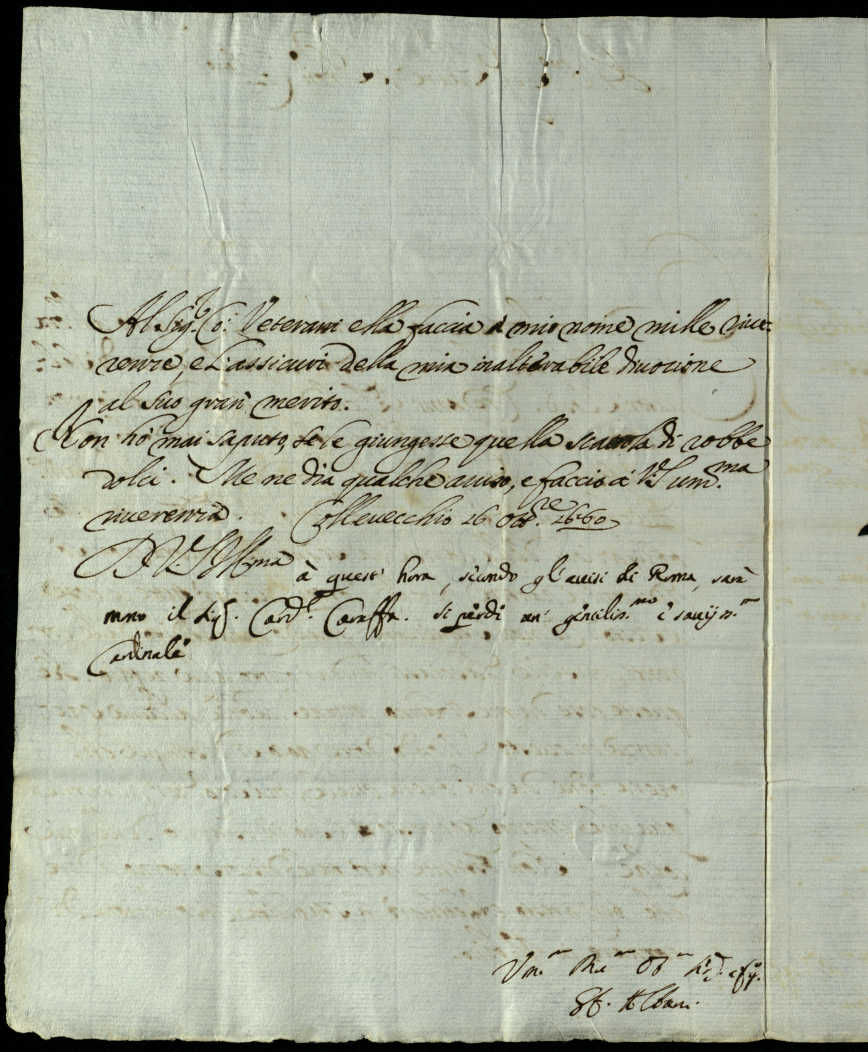 Al Sig.r Co: Veterani ella faccia à mio nome mille rive:
renze, e l'assicuri della mia inalterabile divozione
al suo gran merito.
Non hò mai saputo, se le giungesse quella scatola di robbe
dolci. Me ne dia qualche aviso, e faccio à V.S. Illm.ma
riverenza. Collevecchio 26 Ott.re 1660
D. V. S. Ill.ma
à quest' hora, secondo gl'avisi di Roma, sarà
morto il Sig.r Card.l Caraffa. si perde un' gentiliss.mo e saviiss.mo
Cardinale